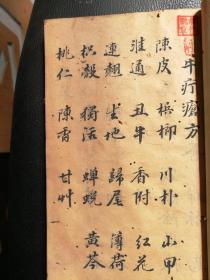 牛疔瘡方
陳皮 梹榔 川朴 山甲
淮通 丑牛 香附 红花
連翹 生地 歸尾 薄荷
枳殼 獨活 蟬蜕 黄芩
桃仁 陳香 甘艸